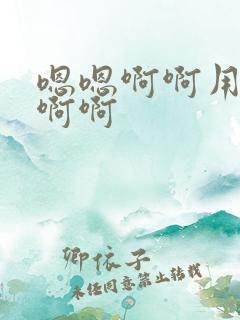 嗯嗯啊啊用
啊啊
卿依子
未经同意禁止转载